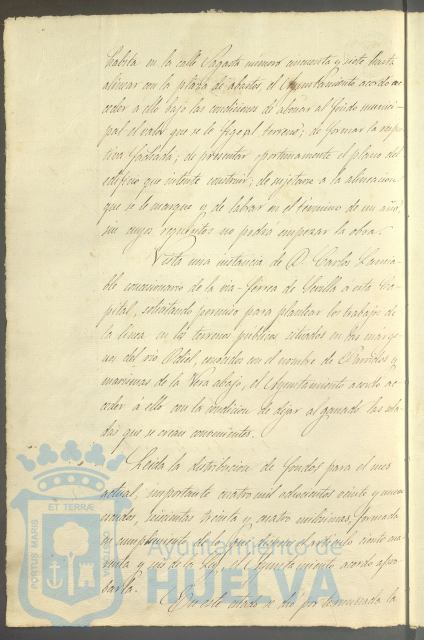 habita en la calle Sagasta número cincuenta y siete hasta
alinear con la plaza de abastos, el Ayuntamiento acordó ac-
ceder a ello bajo las condiciones de abonar al fondo munici-
pal el valor que se le fige al terreno; de formar la
fachada; de presentar oportunamente el plano del
edificio que intente construir; de sujetarse a la alineacion
que se le marque y de labrar en el término de un año,
sin cuyos requisitos no podrá empezar la obra.
Vista una instancia de D. Carlos
concesionario de la via-ferrea de Sevilla a esta Ca-
pital, solicitando permiso para plantear los trabajos de
la linea en los terrenos publicos, situados en las marge-
nes del rio Odiel, conocidos con el nombre de y
marismas de la Vera abajo, el Ayuntamiento acordó ac-
ceder á ello con la condicion de dejar al ganado las
que se crean convenientes.
Leida la distribucion de fondos para el mes
actual, importante cuatro mil doscientos veinte y nueve
escudos, seiscientos treinta y cuatro milésimas, formada
en cumplimiento de lo que dispone el artículo ciento
y seis de la Ley, el Ayuntamiento acordó apro-
barla.
En este estado se dió por terminada la
PORTUS MARIS ET TERRÆ CUSTODIA
Ayuntamiento de
HUELVA